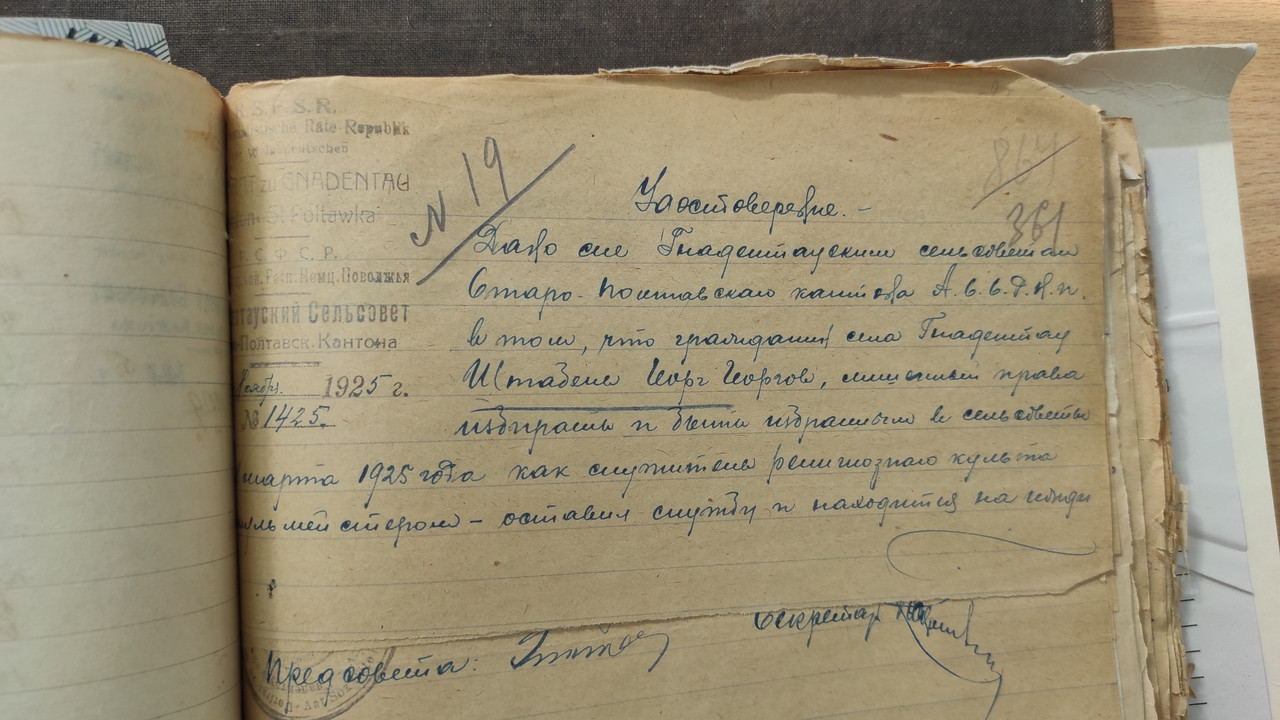 S.F.S.R.
Rate-Republik
GNADENTAU
Poltawka
Р. С. Ф. С. Р.
Респ. Немц. Поволжья
Сельсовет
Полтавск. Кантона
Ноябр. 1925 г.
№ 1425.
N 19
864
361
Удостоверение.-
Дано сие Гнадентауским сельсоветом
Старо-Полтавского кантона А.С.С.Р.Н.П.
в том, что гражданин села Гнадентау
Штабель Георг Георгов, лишенный права
избирать и быть избранным в сельсоветы
марта 1925 года как служитель религиозного культа
мейстером - оставил службу и находится на
Предсовета:
Секретарь